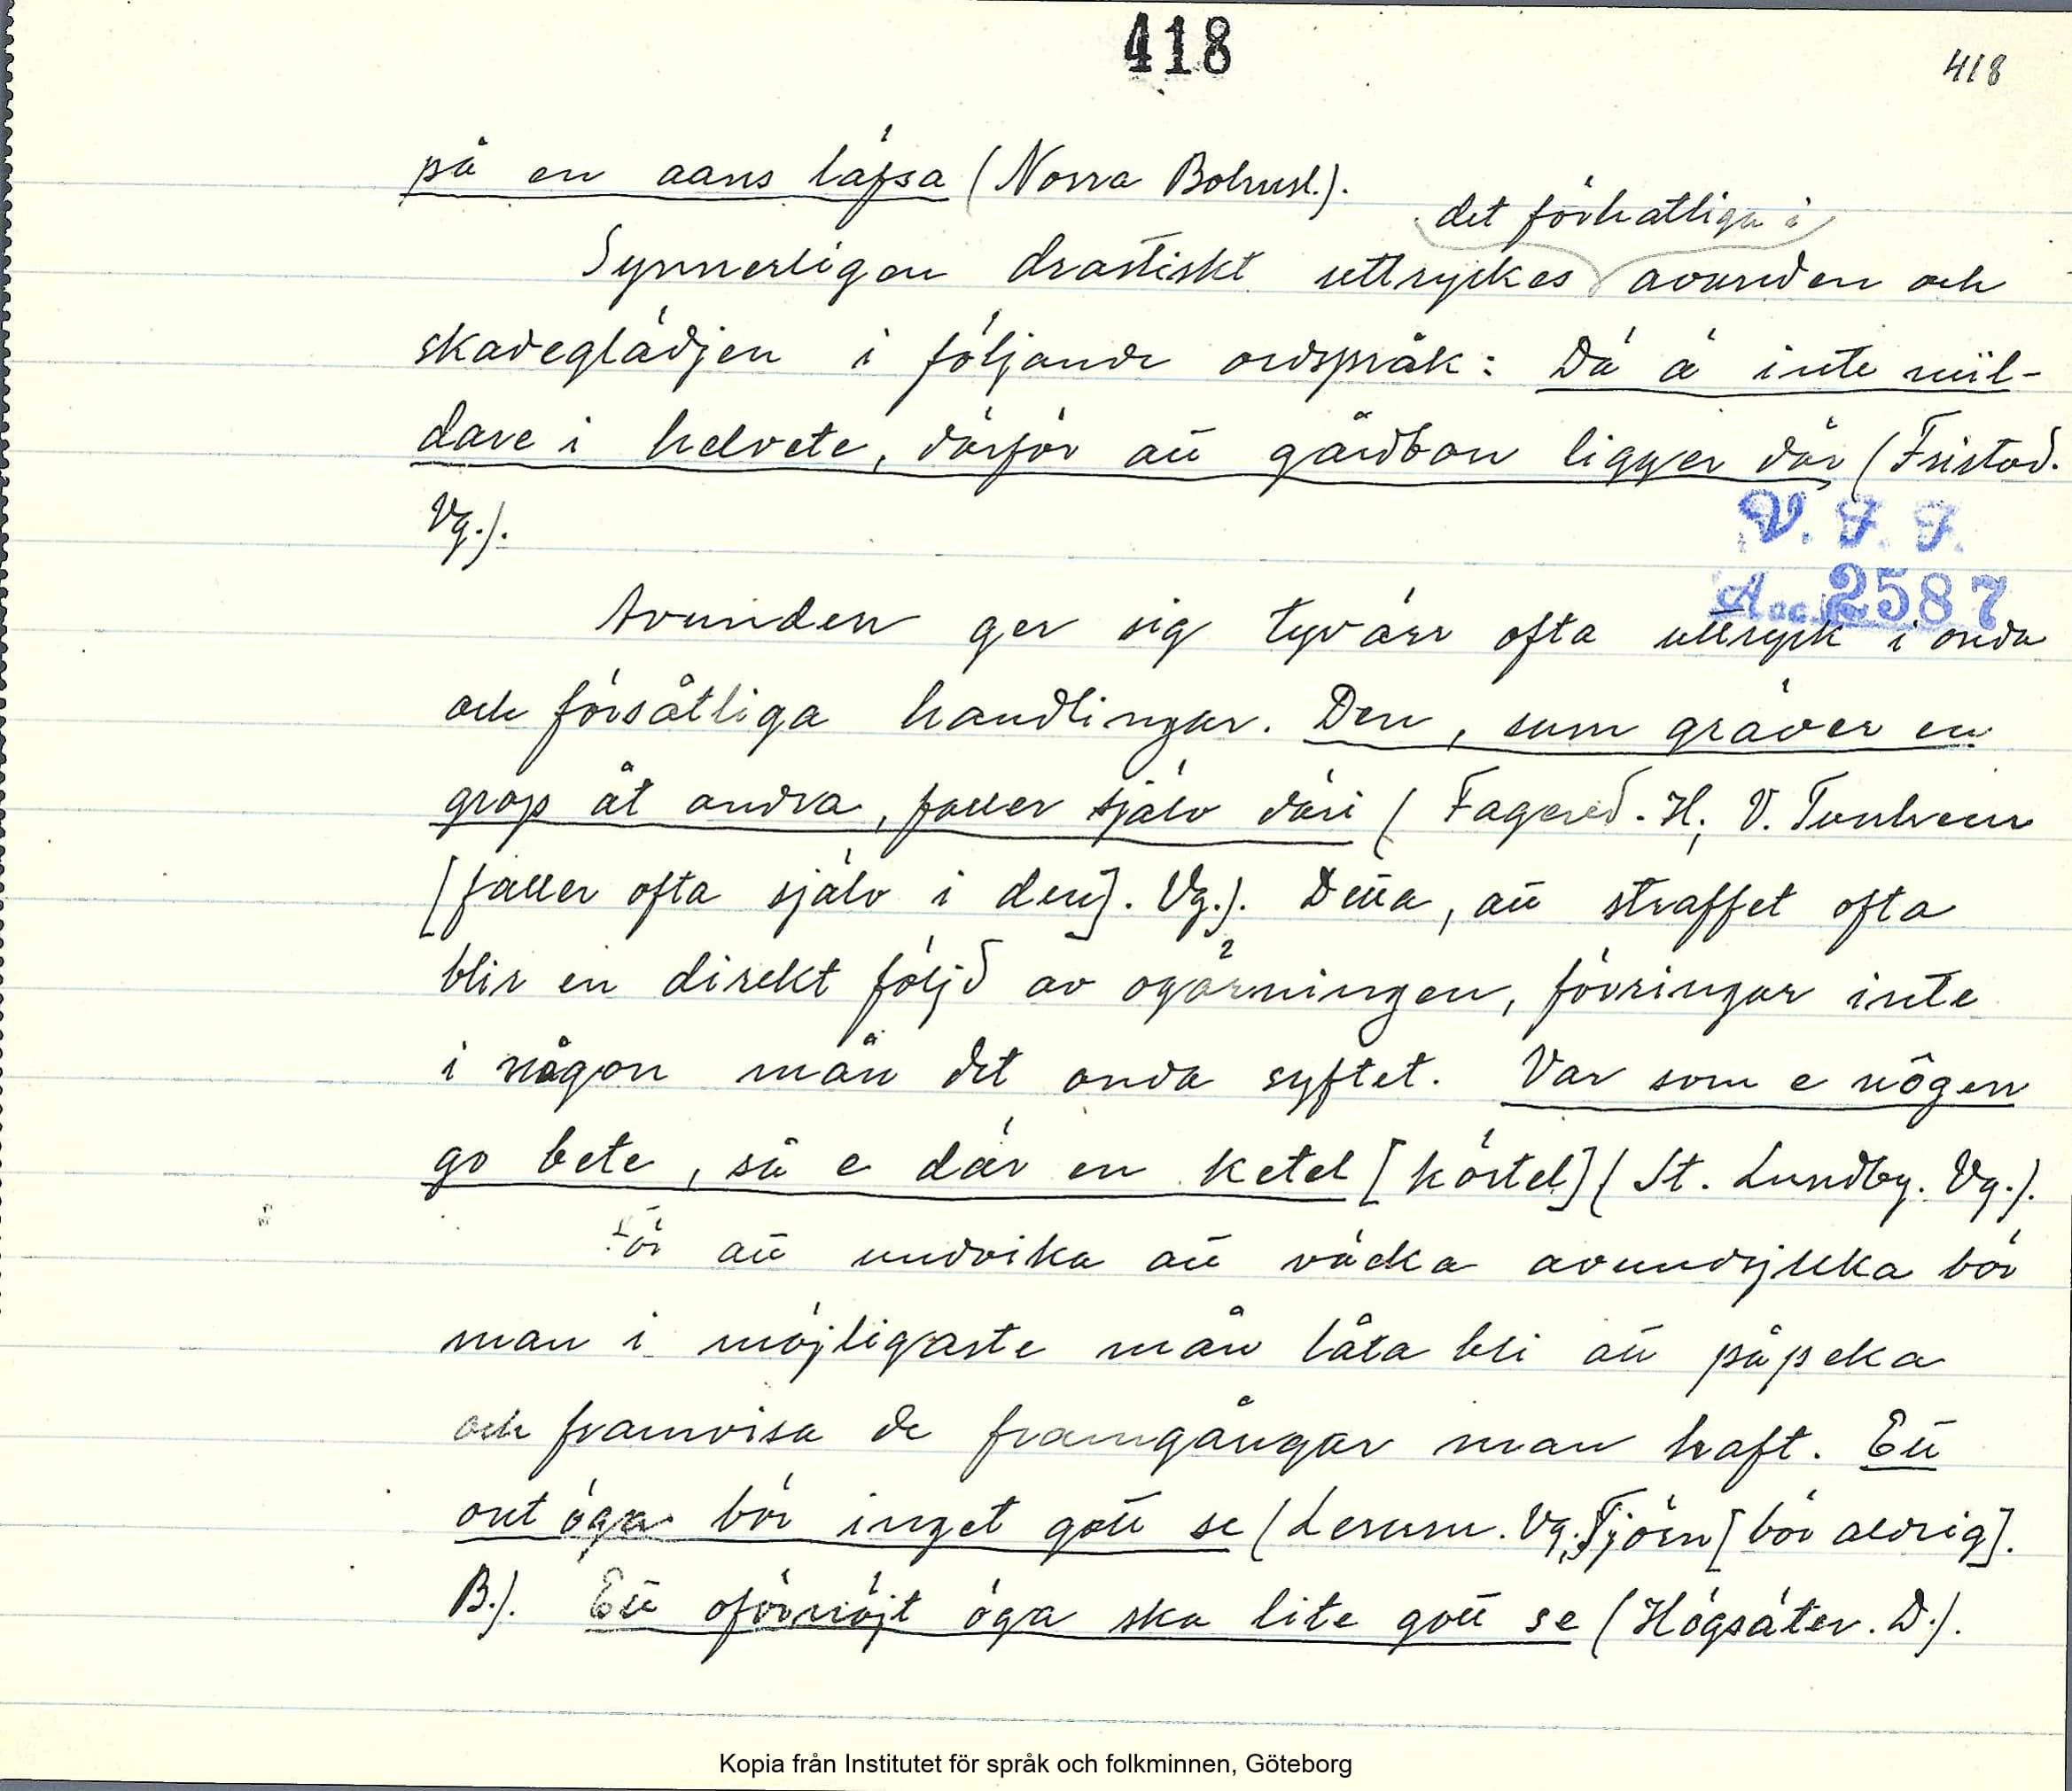 418
418
på en aans läfsa (Norra Bohusl.).
det förhatliga i
Synnerligen drastiskt uttryckes avunden och
skadeglädjen i följande ordspråk: Dä ä inte mil-
dare i helvete, därför att gårdbon ligger där (Fristad.
Vg.).
V. F. F.
Acc. 2587
Avunden ger sig tyvärr ofta uttryck i onda
och försåtliga handlingar. Den, som gräver en
grop åt andra, faller själv däri (Fagered. H; V. Tunhem
[faller ofta själv i den]. Vg.). Detta, att straffet ofta
blir en direkt följd av ogärningen, förringar inte
i någon mån det onda syftet. Var som e nôgen
go bete, så e där en ketel [körtel] (St. Lundby. Vg.).
För att undvika att väcka avundsjuka bör
man i möjligaste mån låta bli att påpeka
och framvisa de framgångar man haft. Ett
ont öga bör inget gott se (Lerum. Vg; Tjörn [bör aldrig].
B.). Ett oförnöjt öga ska lite gott se (Högsäter. D.).
Kopia från Institutet för språk och folkminnen, Göteborg